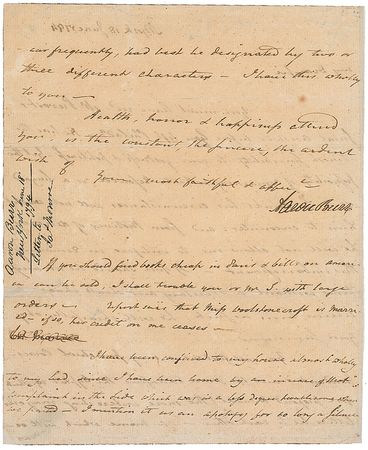 cur frequently, had best be designated by two or
three different characters — I leave this wholly
to you —
Health, honor & happiness attend
you is the constant, the sincere, the ardent
wish of
Your most faithful & affec
Aaron Burr
Aaron Burr
New York June 18
1794
Letter to
Ja. Monroe
If you should find books cheap in
can be sold, I shall trouble you or Mr. S. with large
orders — Report says that Miss Woolstonecroft is marri
ed — if so, her credit on me ceases —
I have been confined to my house almost wholly
to my bed, since I have been home by an increase of that
complaint in the side which was in a less degree troublesome when
we parted — I mention it as an apology for so long a silence